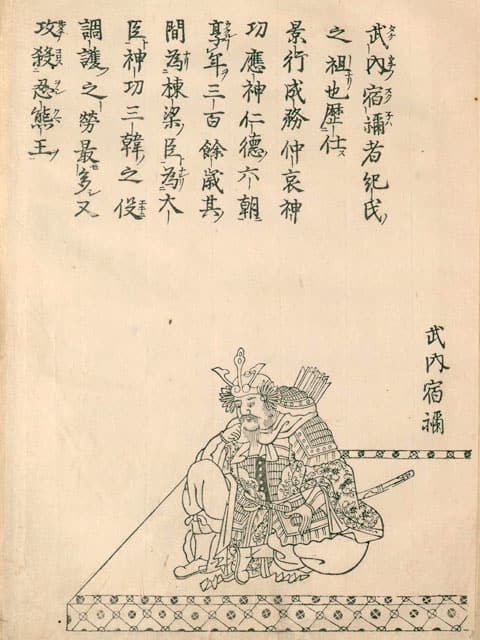 武內宿禰者紀氏
之祖也歷仕
景行成務仲哀神
功應神仁德六朝
享年三百餘歲其
間為棟梁臣為大
臣神功三韓之役
調護之勞最多又
攻殺忍熊王
武內宿禰